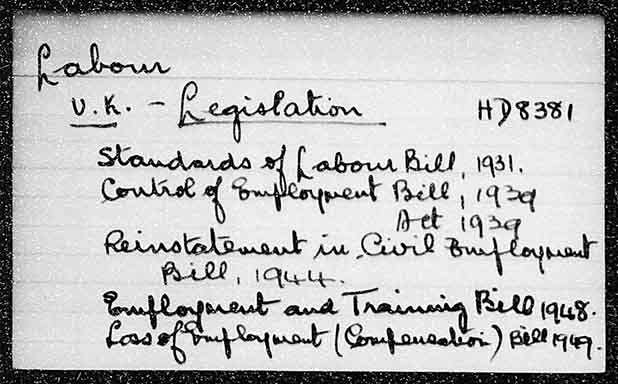 Labour
U.K. - Legislation HD8381
Standards of Labour Bill, 1931.
Control of Employment Bill, 1939
Act 1939
Reinstatement in Civil Employment
Bill, 1944.
Employment and Training Bill 1948.
Loss of Employment (Compensation) Bill 1949.